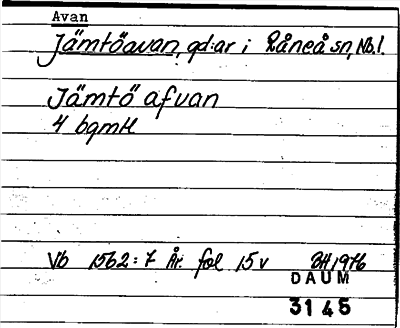 Avan
Jämtöavan, gd:ar i Råneå sn, Nb.l.
Jämtö afvan
4 bgmH
Vb 1562:7 År. fol 15v BH 1976
DAUM
3145